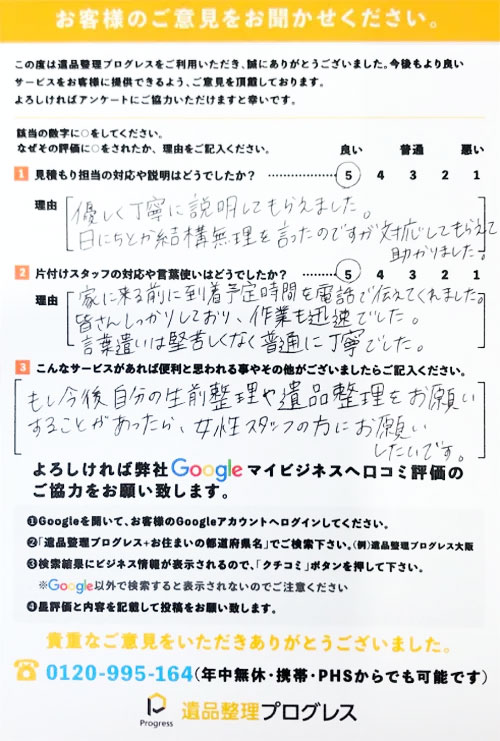 お客様のご意見をお聞かせください。
この度は遺品整理プログレスをご利用いただき、誠にありがとうございました。今後もより良い
サービスをお客様に提供できるよう、ご意見を頂戴しております。
よろしければアンケートにご協力いただけますと幸いです。
該当の数字に○をしてください。
なぜその評価に○をされたか、理由をご記入ください。
良い 普通 悪い
1 見積もり担当の対応や説明はどうでしたか? 5 4 3 2 1
理由 優しく丁寧に説明してもらえました。
日にちとか結構無理を言ったのですが対応してもらえて
助かりました。
2 片付けスタッフの対応や言葉使いはどうでしたか? 5 4 3 2 1
理由 家に来る前に到着予定時間を電話で伝えてくれました。
皆さんしっかりしており、作業も迅速でした。
言葉遣いは堅苦しくなく普通に丁寧でした。
3 こんなサービスがあれば便利と思われる事やその他がございましたらご記入ください。
もし今後自分の生前整理や遺品整理をお願い
することがあったら、女性スタッフの方にお願い
したいです。
よろしければ弊社Googleマイビジネスへ口コミ評価の
ご協力をお願い致します。
❶Googleを開いて、お客様のGoogleアカウントへログインしてください。
❷「遺品整理プログレス+お住まいの都道府県名」でご検索下さい。(例)遺品整理プログレス大阪
❸検索結果にビジネス情報が表示されるので、「クチコミ」ボタンを押して下さい。
※Google以外で検索すると表示されないのでご注意ください
❹星評価と内容を記載して投稿をお願い致します。
貴重なご意見をいただきありがとうございました。
0120-995-164(年中無休・携帯・PHSからでも可能です)
Progress 遺品整理プログレス